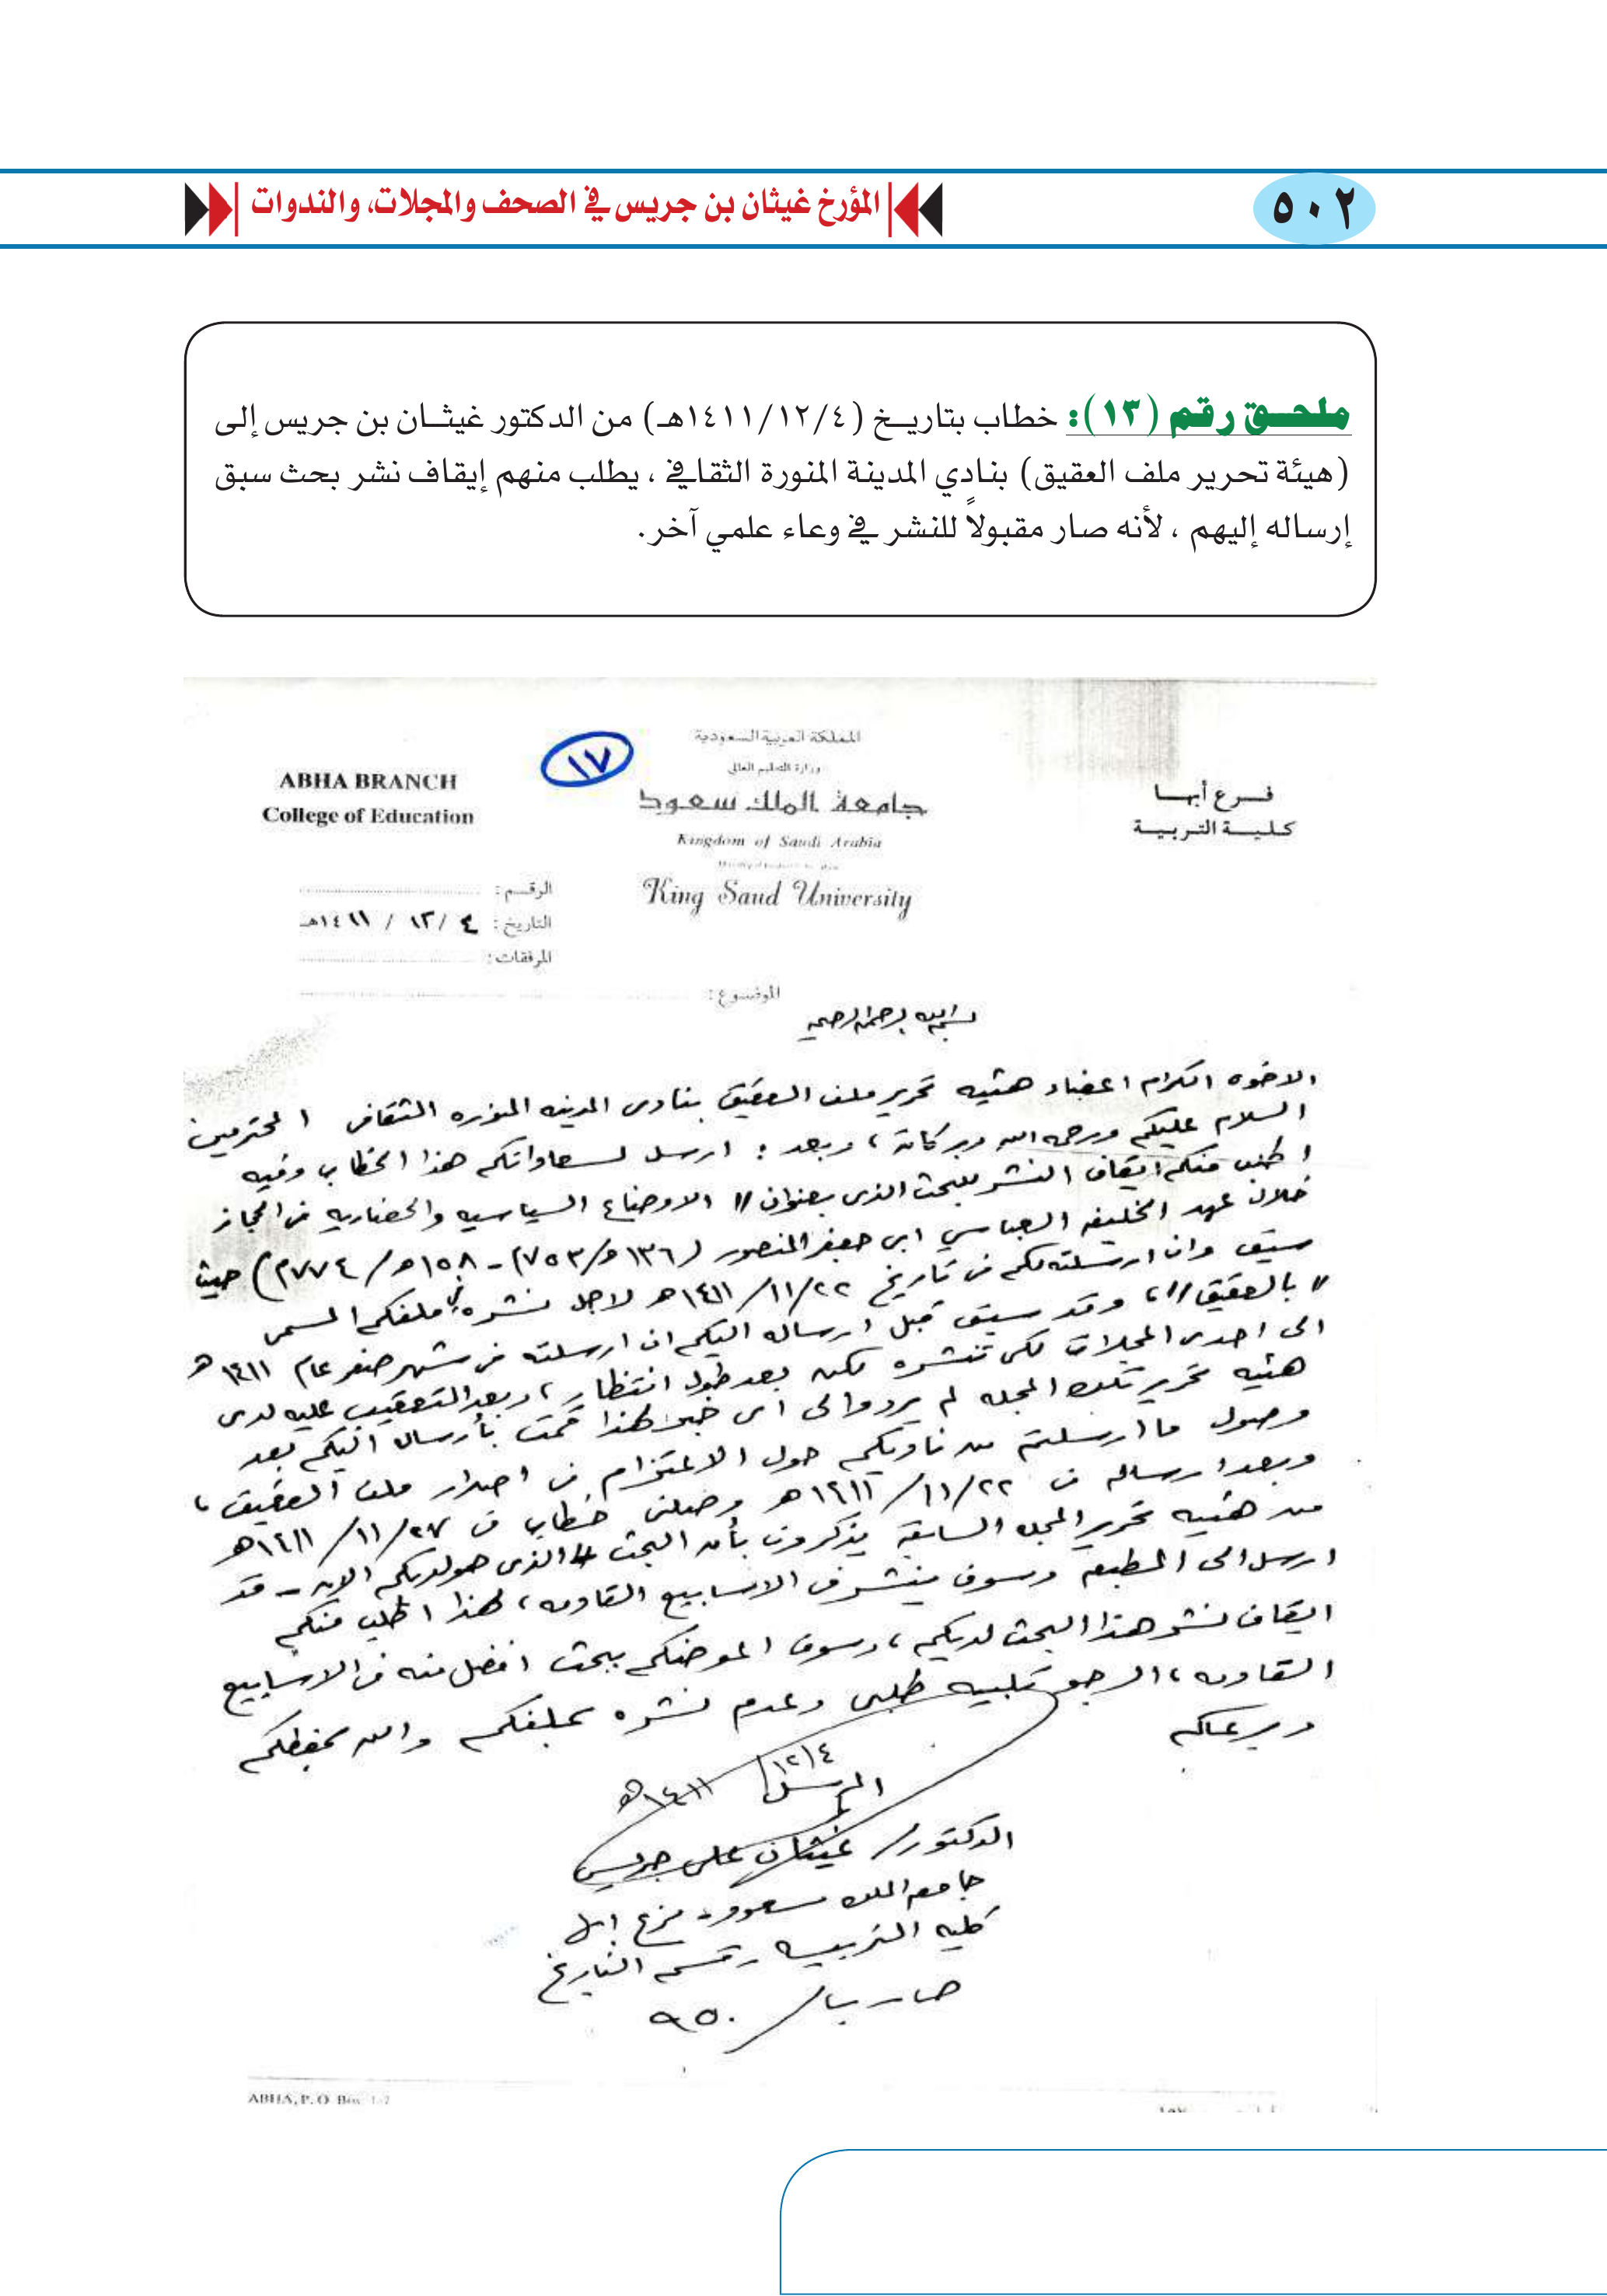 ٥٠٢
المؤرخ غيثان بن جريس في الصحف والمجلات، والندوات
ملحق رقم (١٣): خطاب بتاريخ (١٤١١/١٢/٤هـ) من الدكتور غيثان بن جريس إلى
(هيئة تحرير ملف العقيق) بنادي المدينة المنورة الثقافي ، يطلب منهم إيقاف نشر بحث سبق
إرساله إليهم ، لأنه صار مقبولاً للنشر في وعاء علمي آخر.
المملكة العربية السعودية
وزارة التعليم العالي
جامعة الملك سعود
Kingdom of Saudi Arabia
King Saud University
فرع أبها
كلية التربية
١٧
ABHA BRANCH
College of Education
الرقم :
التاريخ : ٤ / ١٢ / ١٤١١هـ
المرفقات :
الموضوع :
بسم الله الرحمن الرحيم
الاخوه الكرام اعضاء هئيه تحرير ملف العقيق بنادى المدينه المنوره الثقافى المحترمين
السلام عليكم ورحمه الله وبركاته ، وبعد : ارسل لسعاداتكم هذا الخطاب وفيه
اطلب منكم ايقاف النشر للبحث الذى بعنوان // الاوضاع السياسيه والحضاريه فى الحجاز
خلال عهد الخليفه العباسي ابى جعفر المنصور (١٣٦هـ/٧٥٣م - ١٥٨هـ/٧٧٤م) حيث
سبق وان ارسلته لكم فى تاريخ ١٤١١/١١/٢٢هـ لاجل نشره في ملفكم المسمى
// بالعقيق // ، وقد سبق قبل ارساله اليكم ان ارسلته فى شهر صفر عام ١٤١١هـ
الى احدى المجلات لكى تنشره لكن بعد طول انتظار ، وبعد التعقيب عليه لدى
هئيه تحرير تلك المجله لم يردوا لى اى خبر لهذا قمت بأرساله اليكم بعد
وصول ما ارسلتم من ناديكم حول الاعتزام فى اصدار ملف العقيق ،
وبعد ارساله فى ١٤١١/١١/٢٢هـ وصلنى خطاب فى ١٤١١/١١/٢٧هـ
من هئيه تحرير المجله السابقة يذكرون بأن البحث الذى هو لديكم الان - قد
ارسل الى المطبعه وسوف ينشر فى الاسابيع القادمه ، لهذا اطلب منكم
ايقاف نشر هذا البحث لديكم ، وسوف اعوضكم ببحث افضل منه فى الاسابيع
القادمه ، ارجو تلبيه طلبى وعدم نشره بملفكم والله يحفظكم
ويرعاكم
١٢/٤
١٤١١هـ
المرسل
الدكتور / غيثان على جريس
جامعه الملك سعود - فرع ابها
كليه التربيه - قسم التاريخ
ABHA, P. O. Box